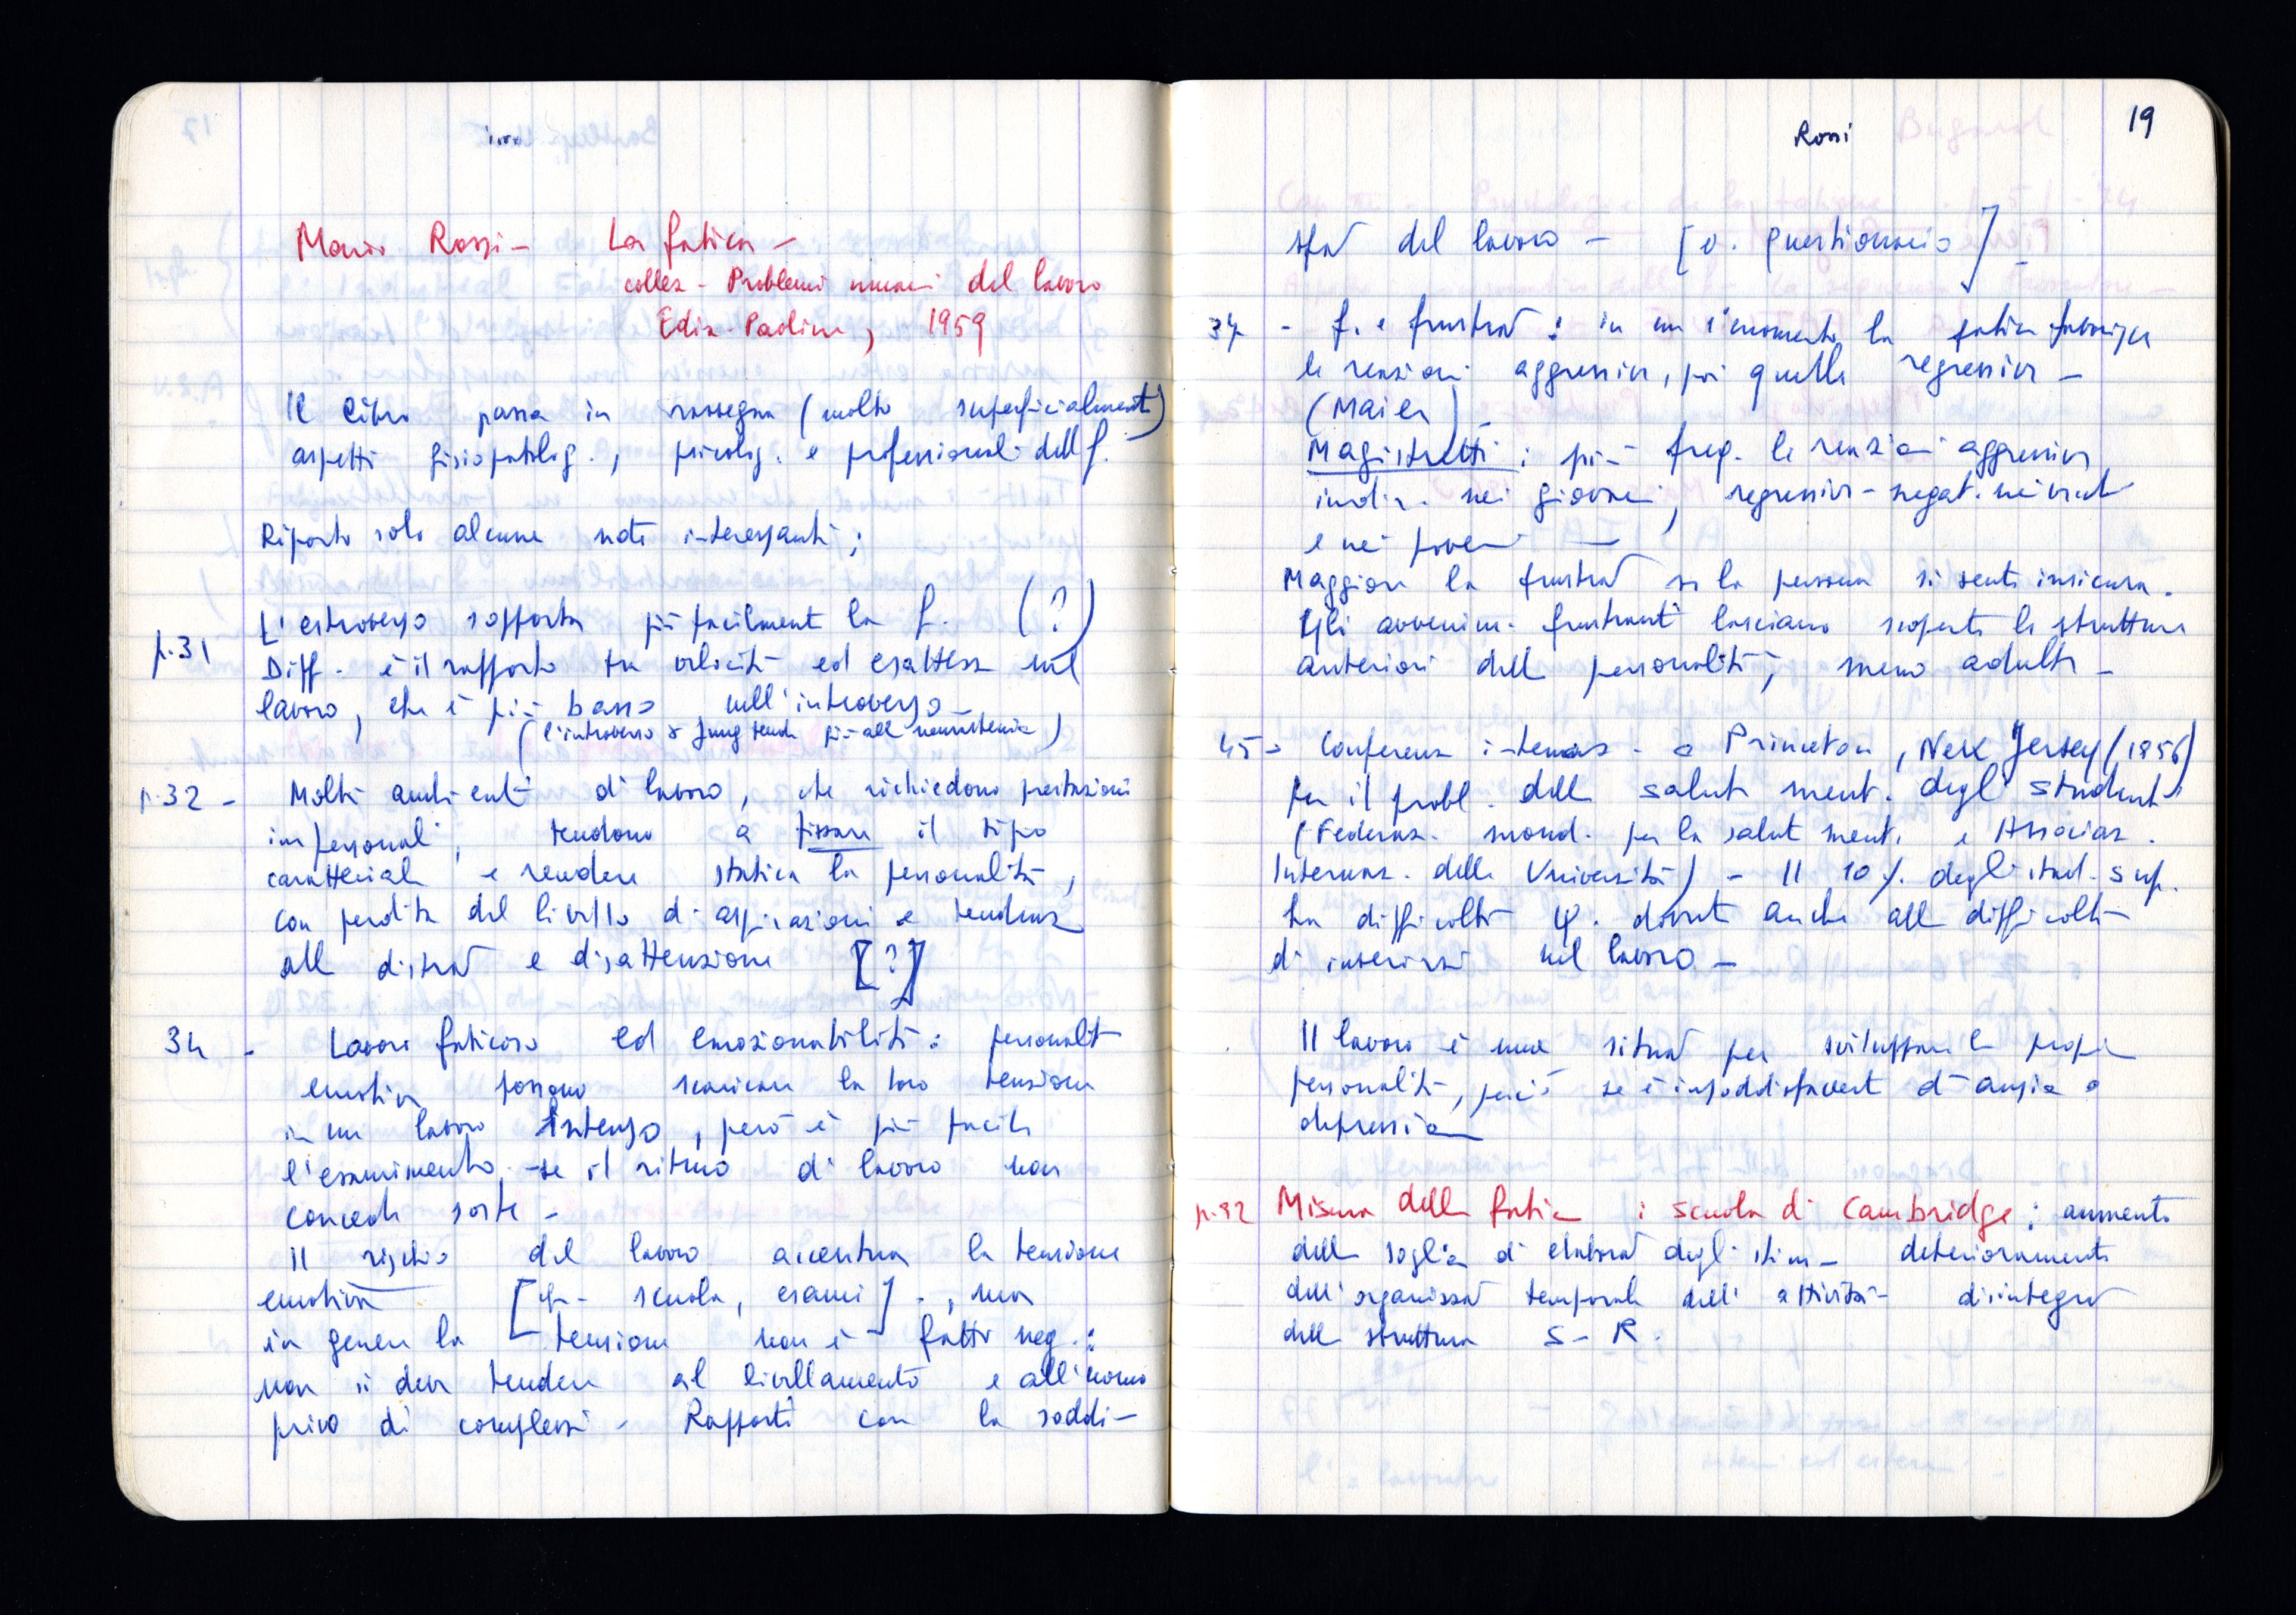 Mario Rossi - La fatica -
collez - Problemi umani del lavoro
Ediz. Paoline, 1959
Il libro passa in rassegna (molto superficialmente)
aspetti fisiopatolog., psicolog. e professionali della f.
Riporto solo alcune note interessanti:
L'estroverso sopporta più facilmente la f. (?)
p.31
Diff. è il rapporto tra velocità ed esattezza nel
lavoro, che è più basso nell'introverso -
(l'introverso di Jung tende più alla neurastenia)
p.32 - Molti ambienti di lavoro, che richiedono prestazioni
impersonali, tendono a fissare il tipo
caratteriale e rendere statica la personalità,
con perdita del livello di aspirazioni e tendenza
alla distraz e disattenzione [?]
34 - Lavoro faticoso ed emozionabilità: personalità
emotive possono scaricare la loro tensione
in un lavoro intenso, però è più facile
l'esaurimento se il ritmo di lavoro non
concede soste -
Il rischio del lavoro accentua la tensione
emotiva [scuola, esami]., ma
in genere la tensione non è fatto neg.:
non si deve tendere al livellamento e all'uomo
privo di complessi - Rapporti con la soddi-
Rossi
19
sfaz del lavoro - [v. questionario] -
37 - f. e frustraz: in un 1° momento la fatica favorisce
le reazioni aggressive, poi quelle regressive -
(Maier) -
Magistretti: più freq. le reazioni aggressive
indir. nei giovani, regressive-negat. nei vecchi
e nei poveri -
Maggiore la frustraz se la persona si sente insicura.
Gli avvenim. frustranti lasciano scoperte le strutture
anteriori della personalità, meno adulte -
45 - Conferenza internaz - a Princeton, New Jersey (1956)
per il probl. della salute ment. degli studenti
(Federaz. mond. per la salute ment. e Associaz.
Internaz. delle Università) - Il 10% degli stud. sup.
ha difficoltà ψ. dovute anche alle difficoltà
di inserirsi nel lavoro -
Il lavoro è una situaz per sviluppare la propria
personalità, perciò se è insoddisfacente dà ansia o
depressione
p.92 Misura della fatica: scuola di Cambridge: aumento
della soglia di elaboraz degli stim - deterioramento
dell'organizzaz temporale dell'attività - disintegraz
della struttura S-R.